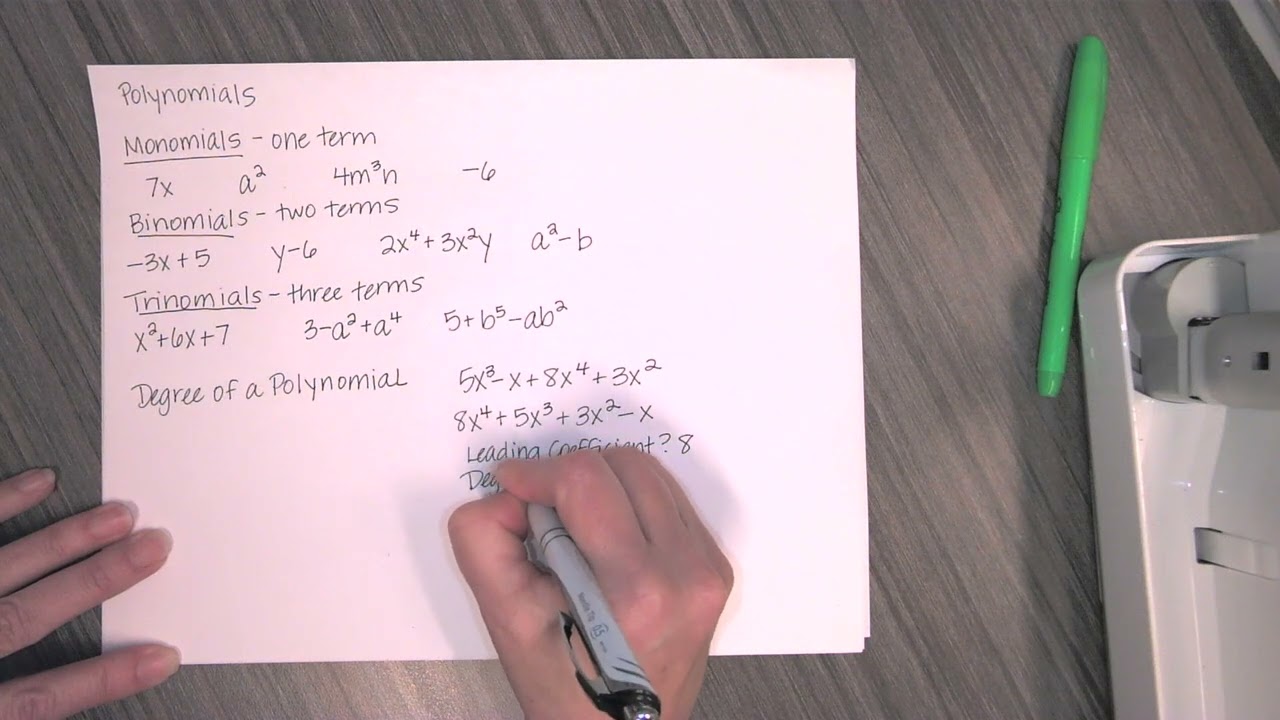 Polynomials
Monomials - one term
7x a² 4m³n -6
Binomials - two terms
-3x + 5 y-6 2x⁴ + 3x²y a²-b
Trinomials - three terms
x²+6x+7 3-a²+a⁴ 5+b⁵-ab²
Degree of a Polynomial 5x³-x + 8x⁴ + 3x²
8x⁴ + 5x³ + 3x² - x
Leading Coefficient? 8